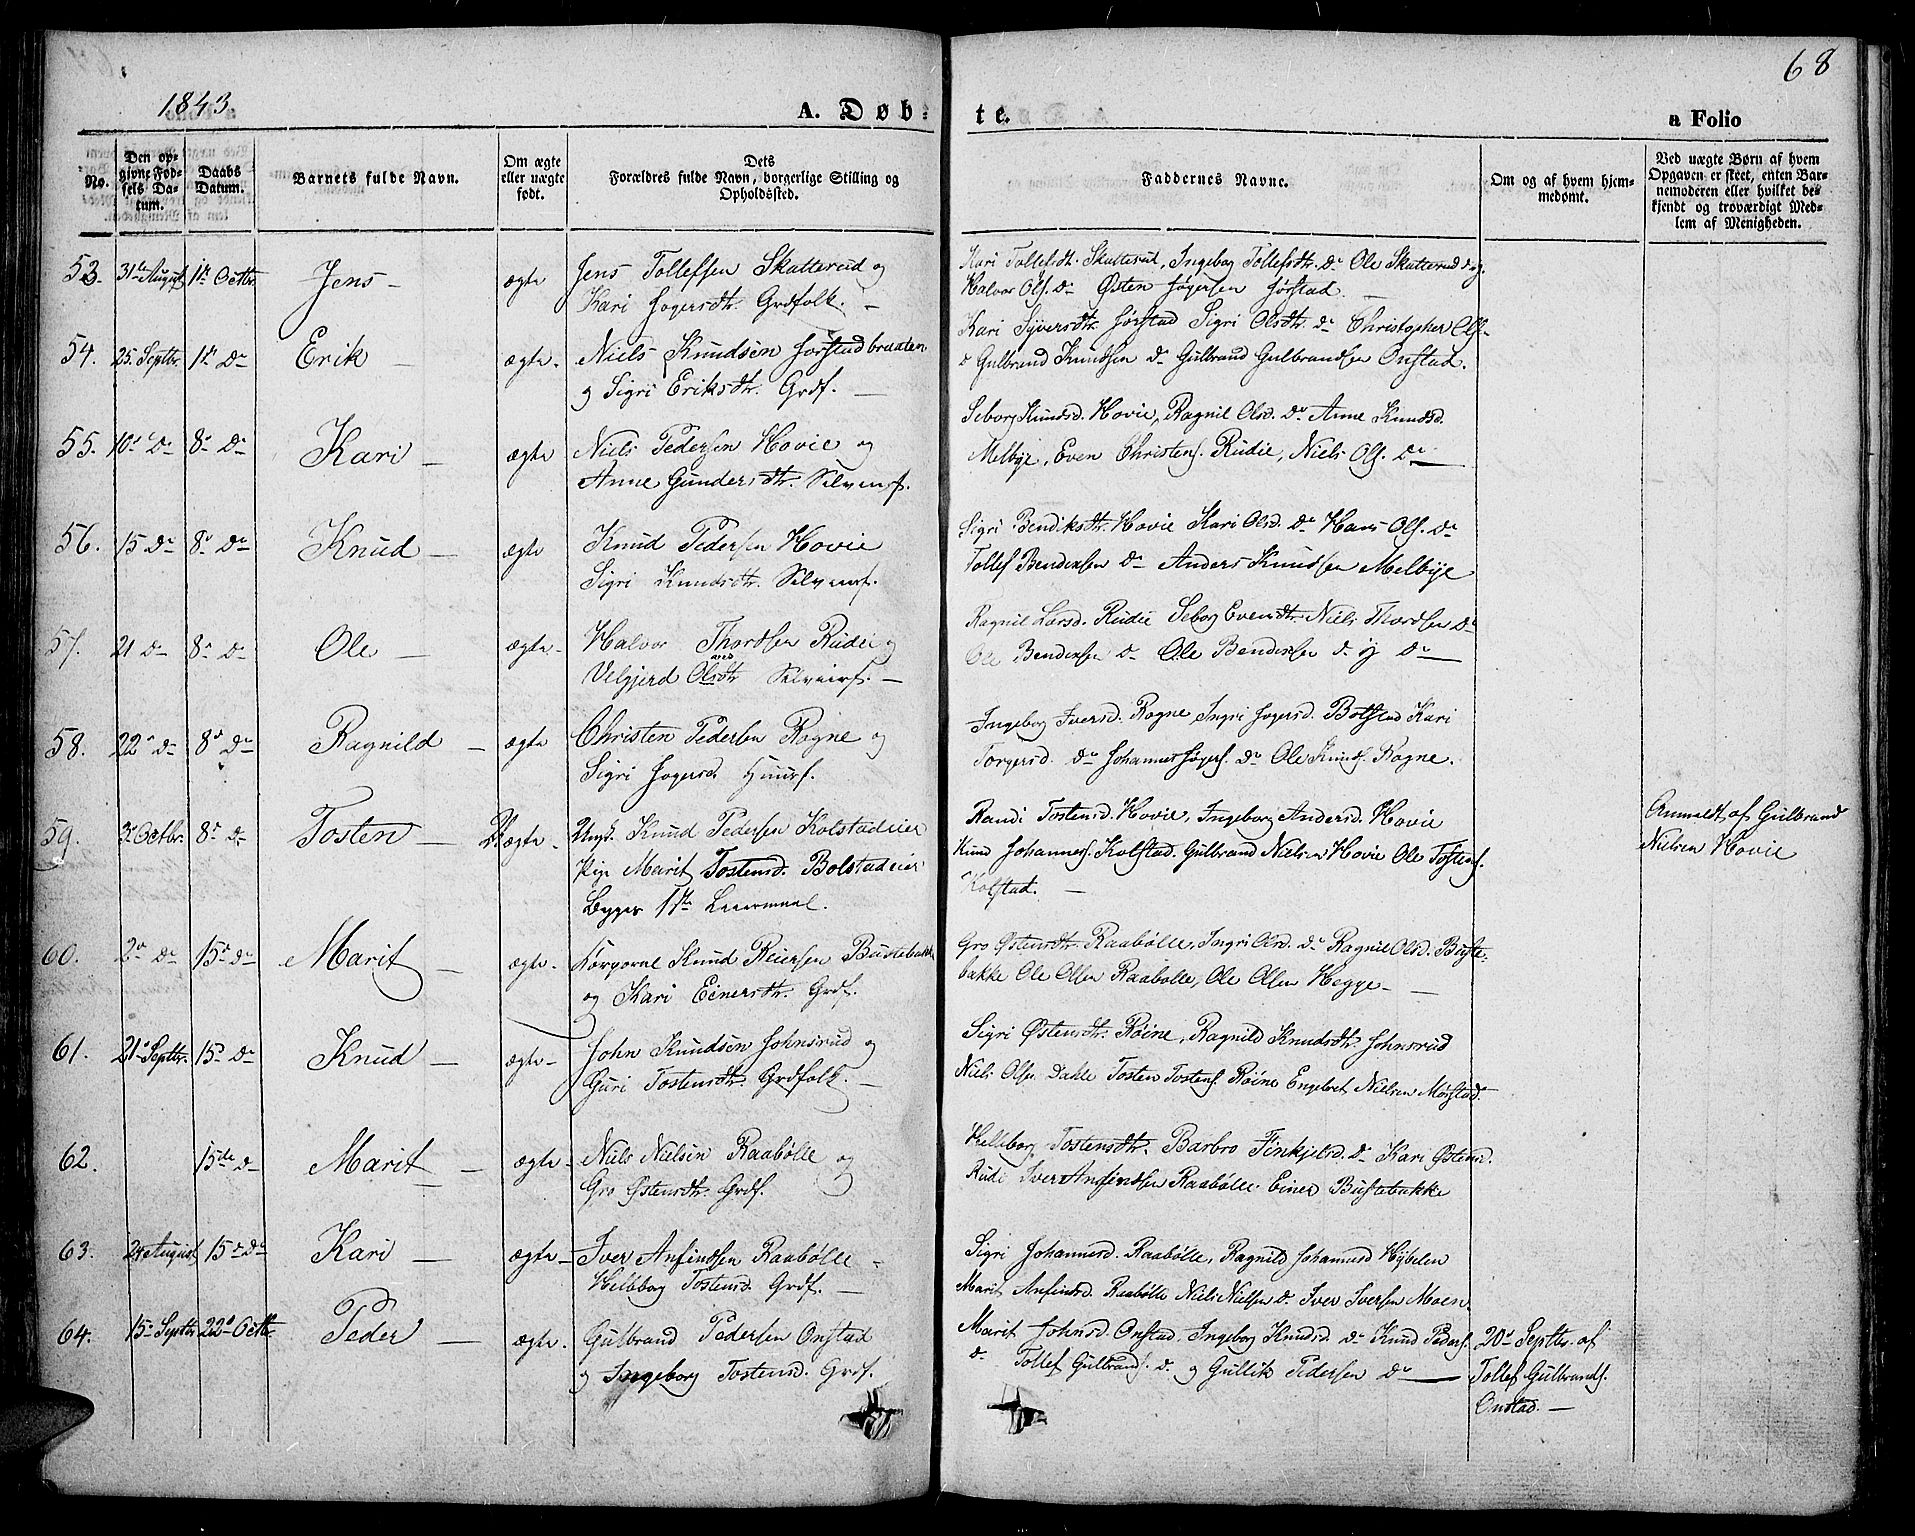 1843.
A. Døb=
te.
a Folio
68
No.
Den op-
givne Fød-
sels Da-
tum.
Daabs
Datum.
Barnets fulde Navn.
Om ægte
eller uægte
født.
Dets
Forældres fulde Navn, borgerlige Stilling og
Opholdssted.
Faddernes Navne.
Om og af hvem hjem-
medømt.
Ved uægte Børn af hvem
Opgaven er skeet, enten Bar-
nemoderen eller hvilket be-
kjendt og troværdigt Med-
lem af Menigheden.
53. 31te August 1ste Octbr. Jens – ægte Jens Tollefsen Skatterud og
Kari Jogersdtr. Grdfolk. –
Kari Tollefsdtr. Skatterud, Ingebog Tollefsdtr. Do Ole Skatterud
Halvor Ols. Do Østen Jøgersen Jørstad –
54. 25 Septbr. 1ste Do Erik – ægte. Niels Knudsen Jorstadbraaten
og Sigri Eriksdtr. Grdf. –
Kari Syversdtr. Jørstad Sigri Olsdtr. Do Christopher Ols.
Do Gulbrand Knudsen Do Gulbrand Gulbrandsen Onstad.
55. 10de Do 8de Do Kari – ægte Niels Pedersen Hovie og
Anne Gundersdtr. Selveirf.
Seborg Knudsd. Hovie, Ragnil Olsd. Do Anne Knudsd.
Melbye, Even Christens. Rudie, Niels Ols. Do –
56. 15 Do 8de Do Knud – ægte Knud Pedersen Hovie
Sigri Knudsdtr. Selveirf.
Sigri Bendiksdtr. Hovie Kari Olsd. Do Hans Ols. Do
Tollef Bendixsen Do Anders Knudsen Melbye
57. 21 Do 8de Do Ole – ægte – Halvor Thordsen Rudie og
Velgjerd Olsdtr Selveirf. –
Ragnil Larsd. Rudie Seborg Evensdtr. Niels Thordsen Do
Ole Bendixsen Do Ole Bendixsen d. y Do –
58. 22de Do 8de Do Ragnild – ægte Christen Pedersen Rogne og
Sigri Jogersd. Huusf.
Ingeborg Iversd. Rogne, Ingri Jogersd. Bolstad Kari
Torgersd. Do Johannes Jøgers. Do Ole Knuds. Rogne.
59. 3de Octbr. 8de Do Tosten – Uægte – Ungk. Knud Pedersen Kolstadeier
Pige Marit Tostensd. Bolstadeier
Begges 1ste Leiermaal.
Randi Tostensd. Hovie, Ingeborg Andersd. Hovie
Knud Johannes. Kolstad. Gulbrand Nielsen Hovie Ole Tostens.
Kolstad. –
Anmeldt af Gulbrand
Nielsen Hovie
60. 2de Do 15de Do Marit – ægte – Korporal Knud Reiersen Bustebakke
og Kari Einersdtr. Grdf.
Gro Østensdtr. Raabølle, Ingri Olsd. Do Ragnil Olsd. Buste-
bakke Ole Olsen Raabølle, Ole Olsen Hegge –
61. 21de Septbr. 15de Do Knud – ægte – John Knudsen Johnsrud og
Guri Tostensdtr. Grdfolk. –
Sigri Østensdtr. Røine, Ragnild Knudsdtr. Johnsrud
Niels Olsen Dahle Tosten Tostens. Røine Engebret Nielsen Mørstad.
62. 15de Do Marit – ægte – Niels Nielsen Raabølle og
Gro Østensdtr. Grdf.
Helbborg Tostensdtr. Barbro Finkjelsd. Do Kari Østensd.
Rudi Iver Anfindsen Raabølle Einer Bustebakke
63. 24 August 15de Do Kari – ægte – Iver Anfindsen Raabølle –
Helbborg Tostensd. Grdf. –
Sigri Johannesd. Raabølle, Ragnild Johannesd Hybelen
Marit Anfindsd. Raabølle Niels Nielsen Do Iver Iversen Moen
64. 15de Septbr 22de Octbr Peder – ægte. Gulbrand Pedersen Onstad
og Ingeborg Tostensd. Grdf.
Marit Johnsd. Onstad, Ingeborg Knudsd. Do Knud Peders.
Do Tollef Gulbrands. Do og Gullik Pedersen Do –
20de Septbr. af
Tollef Gulbrands.
Onstad. –